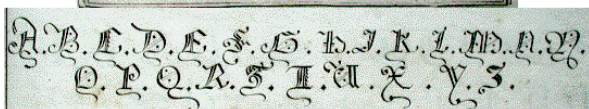 A. B. C. D. E. F. G. H. I. K. L. M. N. N.
O. P. Q. R. S. T. U. X. Y. Z.